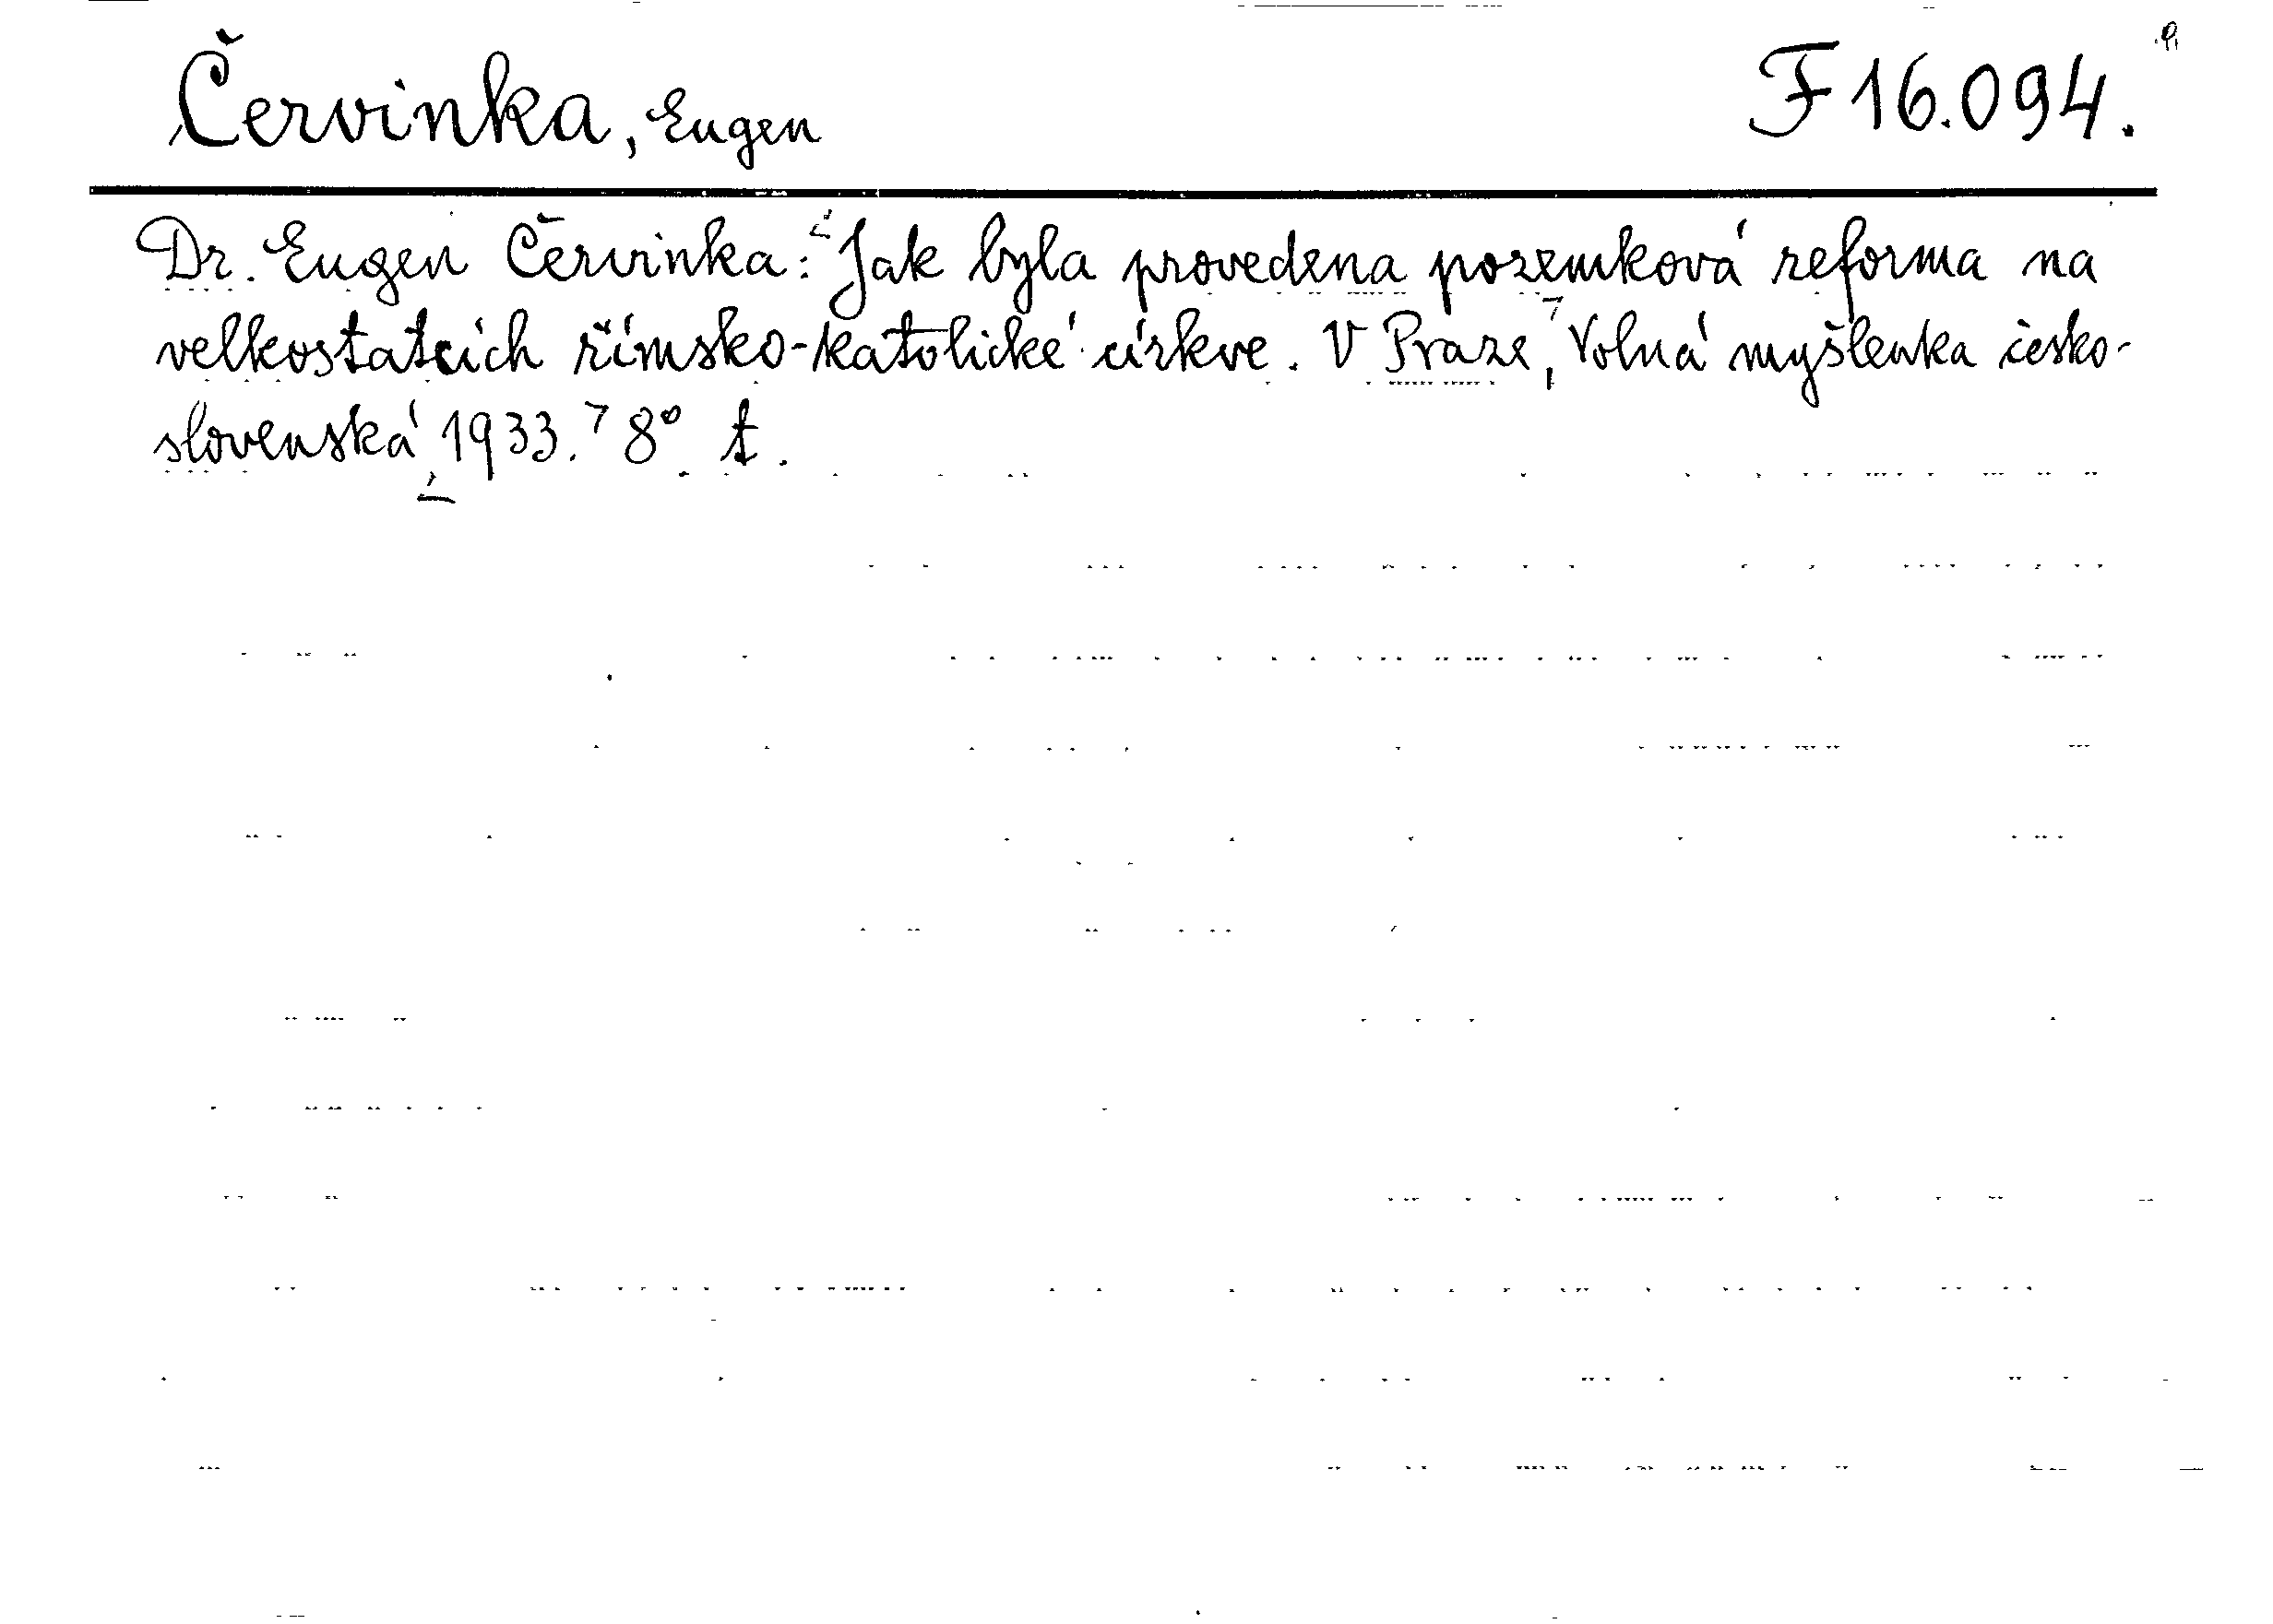 Červinka, Eugen F 16.094.
Dr. Eugen Červinka: Jak byla provedena pozemková reforma na
velkostatcích římsko-katolické církve. V Praze, Volná myšlenka česko-
slovenská, 1933. 8° t.